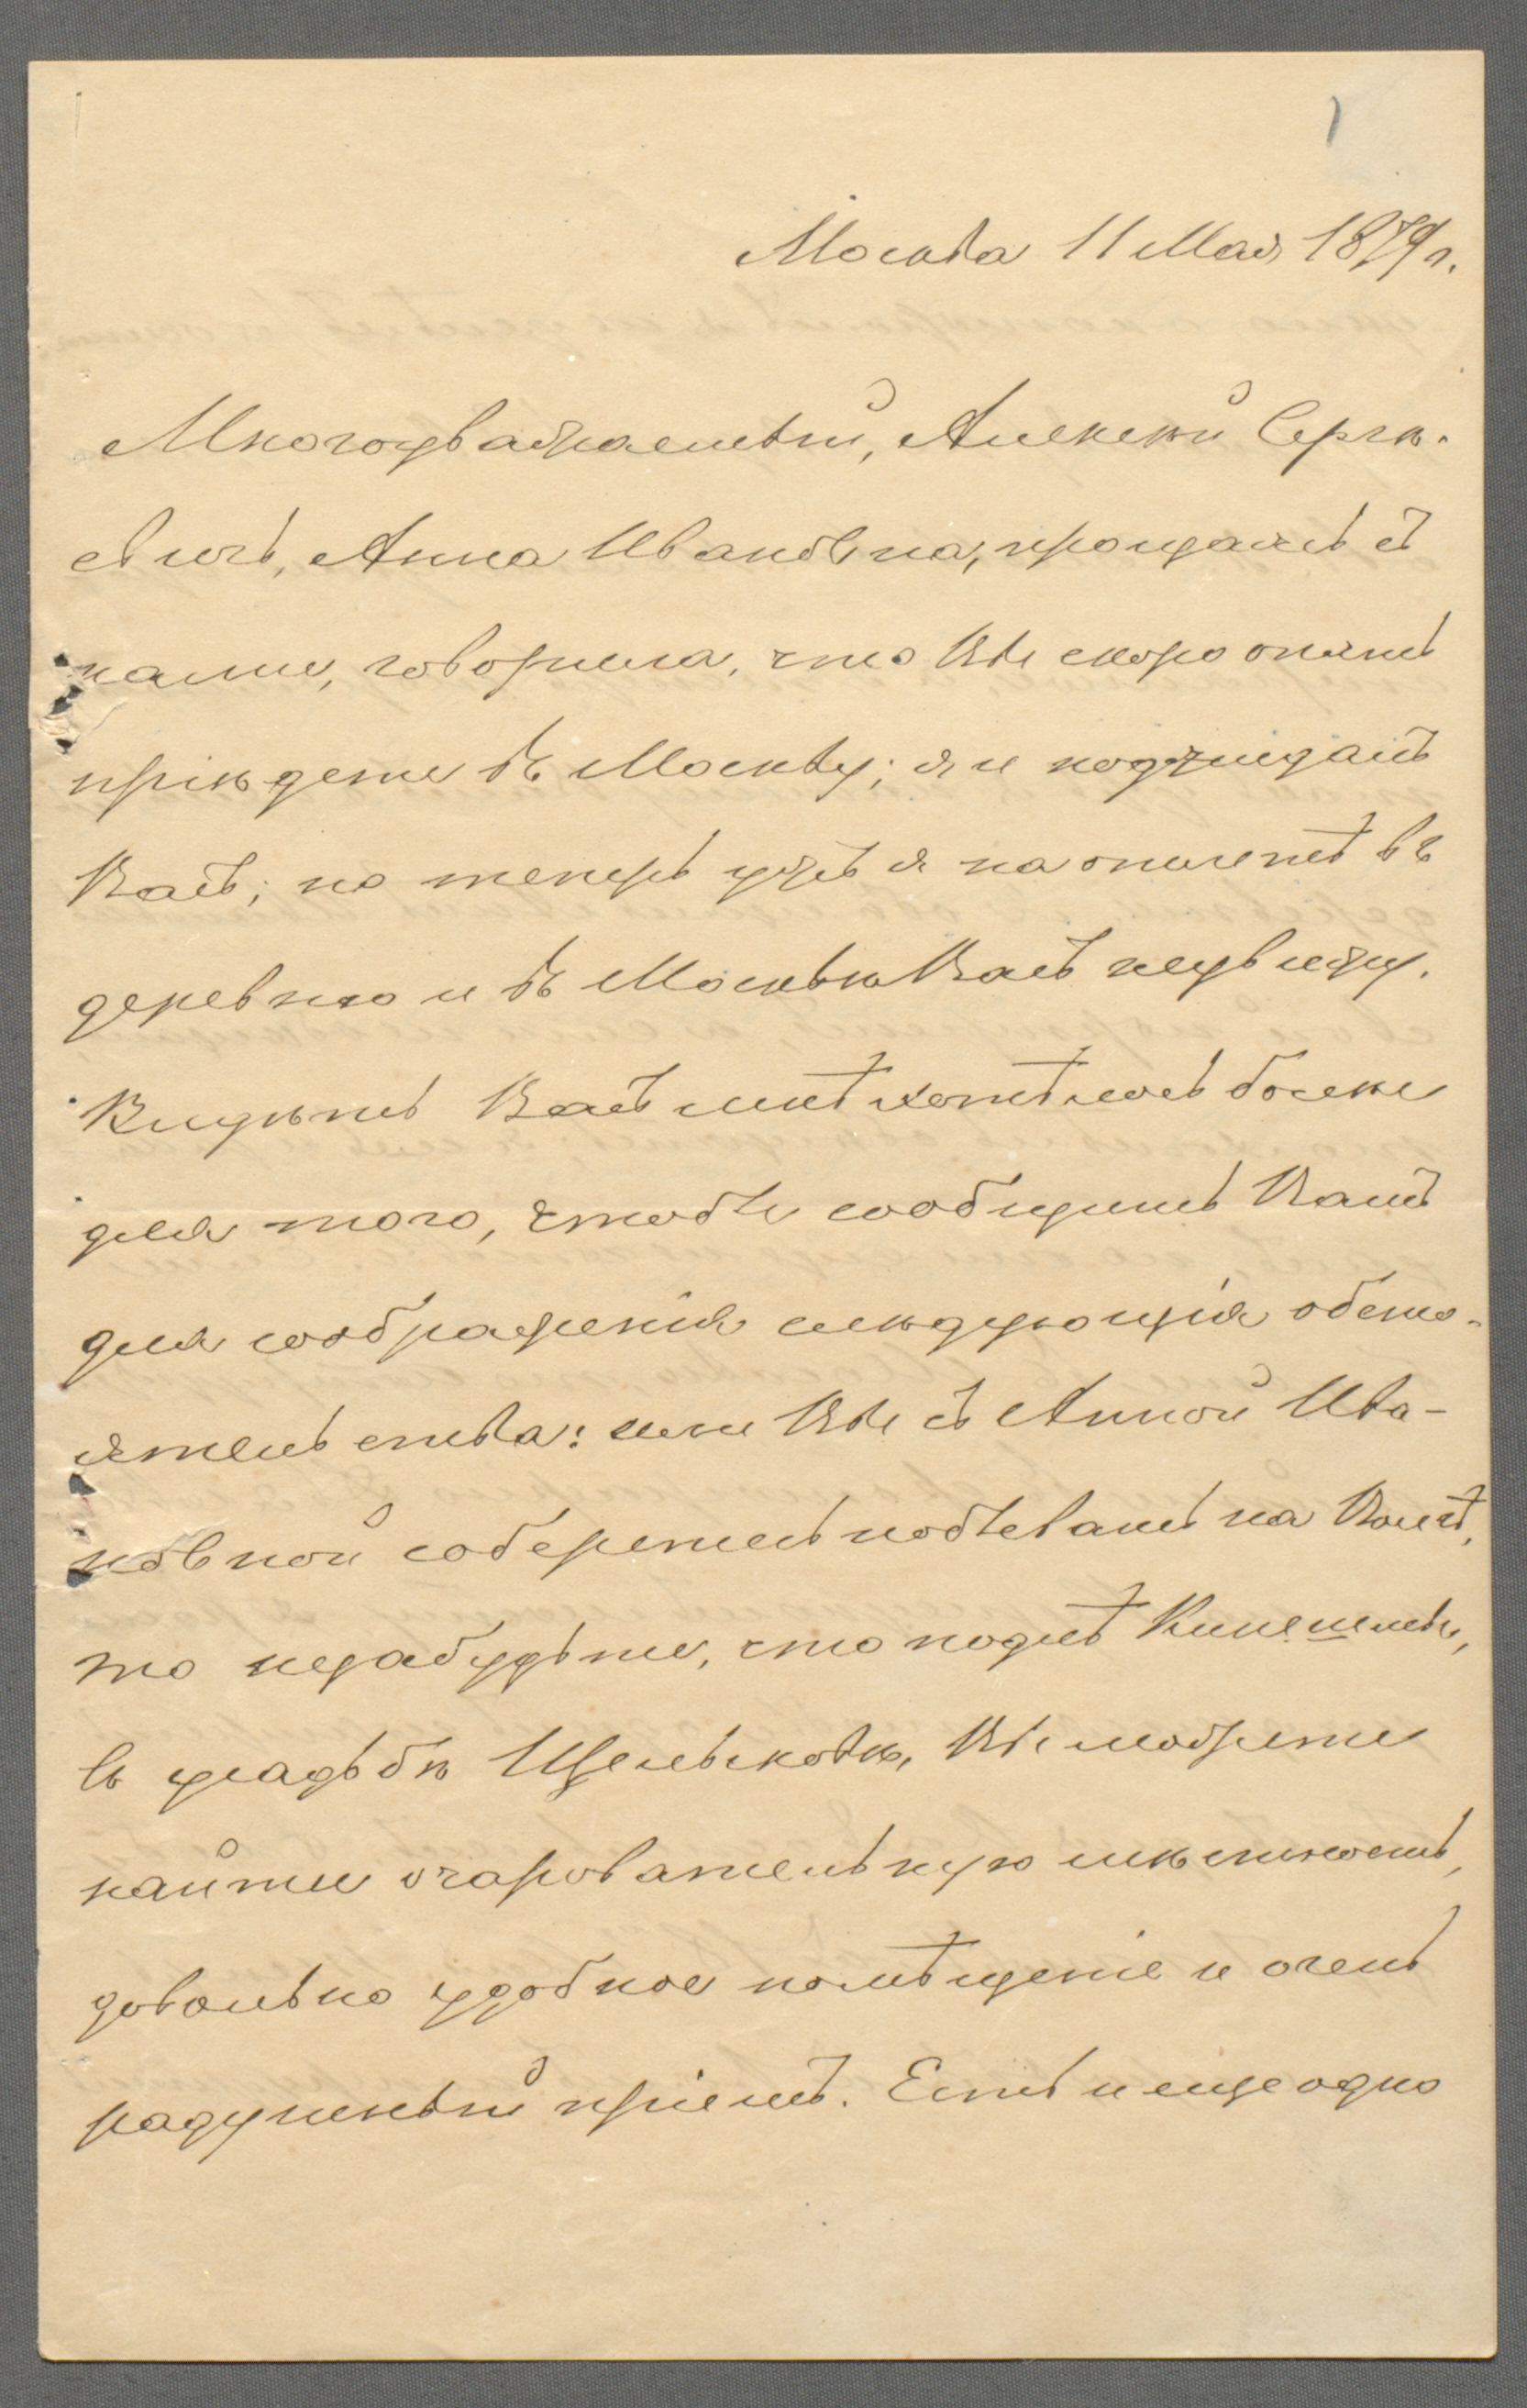 1
Москва 11 Мая 1879 г.
Многоуважаемый, Алексѣй Сергѣ-
евичъ, Анна Ивановна, прощаясь съ
нами, говорила, что Вы скоро опять
пріѣдете въ Москву; я и поджидалъ
Васъ; но теперь уѣзжаю въ
деревню и въ Москвѣ Васъ неувижу.
Видѣть Васъ мнѣ хотѣлось болѣе
для того, чтобы сообщить Вамъ
для соображенія слѣдующія обсто-
ятельства: если Вы съ Анной Ива-
новной соберетесь побывать на Волгѣ,
то незабудьте, что подлѣ Кинешмы,
въ усадьбѣ Щелыковѣ, Вы можете
найти очаровательную мѣстность,
довольно удобное помѣщеніе и очень
радушный пріемъ. Есть и еще одно